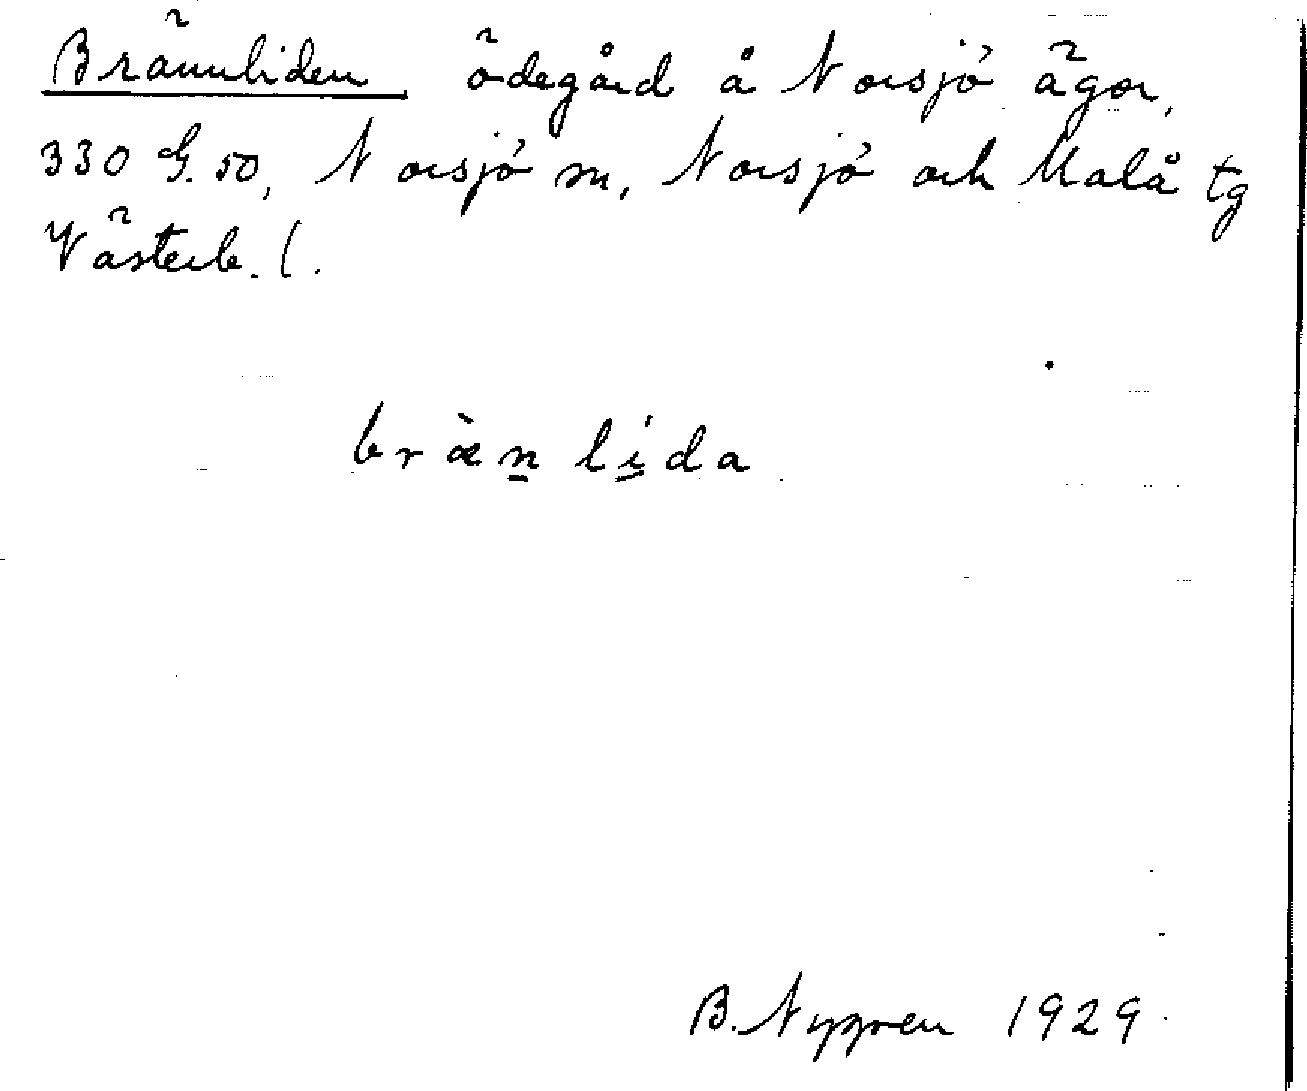 Brännliden ödegård å Norsjö ägor,
330 G. 50, Norsjö sn, Norsjö och Malå tg
Västerb. l.
bræ̀n lída
B. Nygren 1929